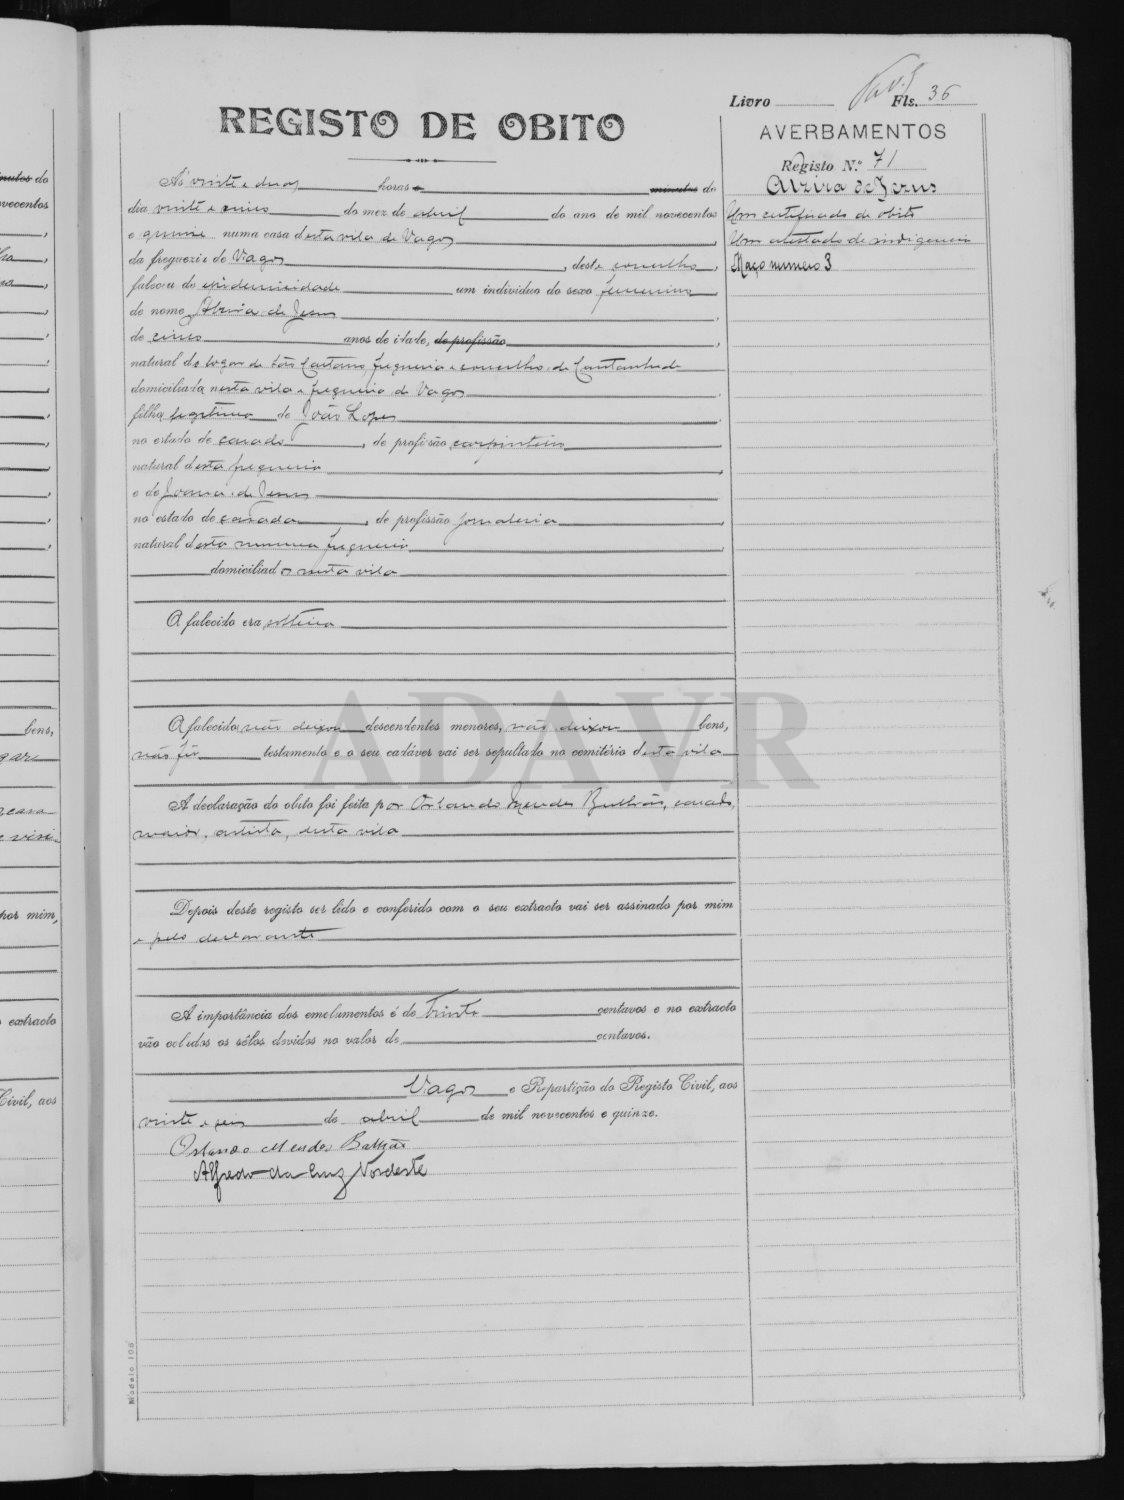 Livro Fls. 36
REGISTO DE OBITO
AVERBAMENTOS
Registo N.º 71
Alzira de Jesus
Um certificado de obito
Um atestado de indigencia
Maço numero 3
Ás vinte e duas horas e minutos do
dia vinte e cinco do mez de abril do ano de mil novecentos
e quinze numa casa desta vila de Vagos,
da freguezia de Vagos, deste concelho,
faleceu de um individuo do sexo femenino
de nome Alzira de Jesus,
de cinco anos de idade, de profissão,
natural do logar de São Caetano freguesia e concelho de Cantanhede
domiciliada nesta vila e freguesia de Vagos,
filha legitima de João Lopes,
no estado de casado, de profissão carpinteiro,
natural desta freguesia,
e de Joana de Jesus
no estado de casada, de profissão jornaleira,
natural desta mesma freguesia,
domiciliados nesta vila
A falecida era solteira
A falecida não deixou descendentes menores, não deixou bens,
não fez testamento e o seu cadáver vai ser sepultado no cemitério desta vila
A declaração do obito foi feita por Orlando Mendes Balhão, casado,
maior, artista, desta vila
Depois deste registo ser lido e conferido com o seu extracto vai ser assinado por mim
e pelo declarante
A importância dos emolumentos é de trinta centavos e no extracto
vão colados os sêlos devidos no valor de centavos.
Vagos e Repartição do Registo Civil, aos
vinte e seis de abril de mil novecentos e quinze.
Orlando Mendes Balhão
Alfredo da Cruz Nordeste
Modelo 108
ADAVR
nutos do
vecentos
bens,
por mim,
o extracto
Civil, aos